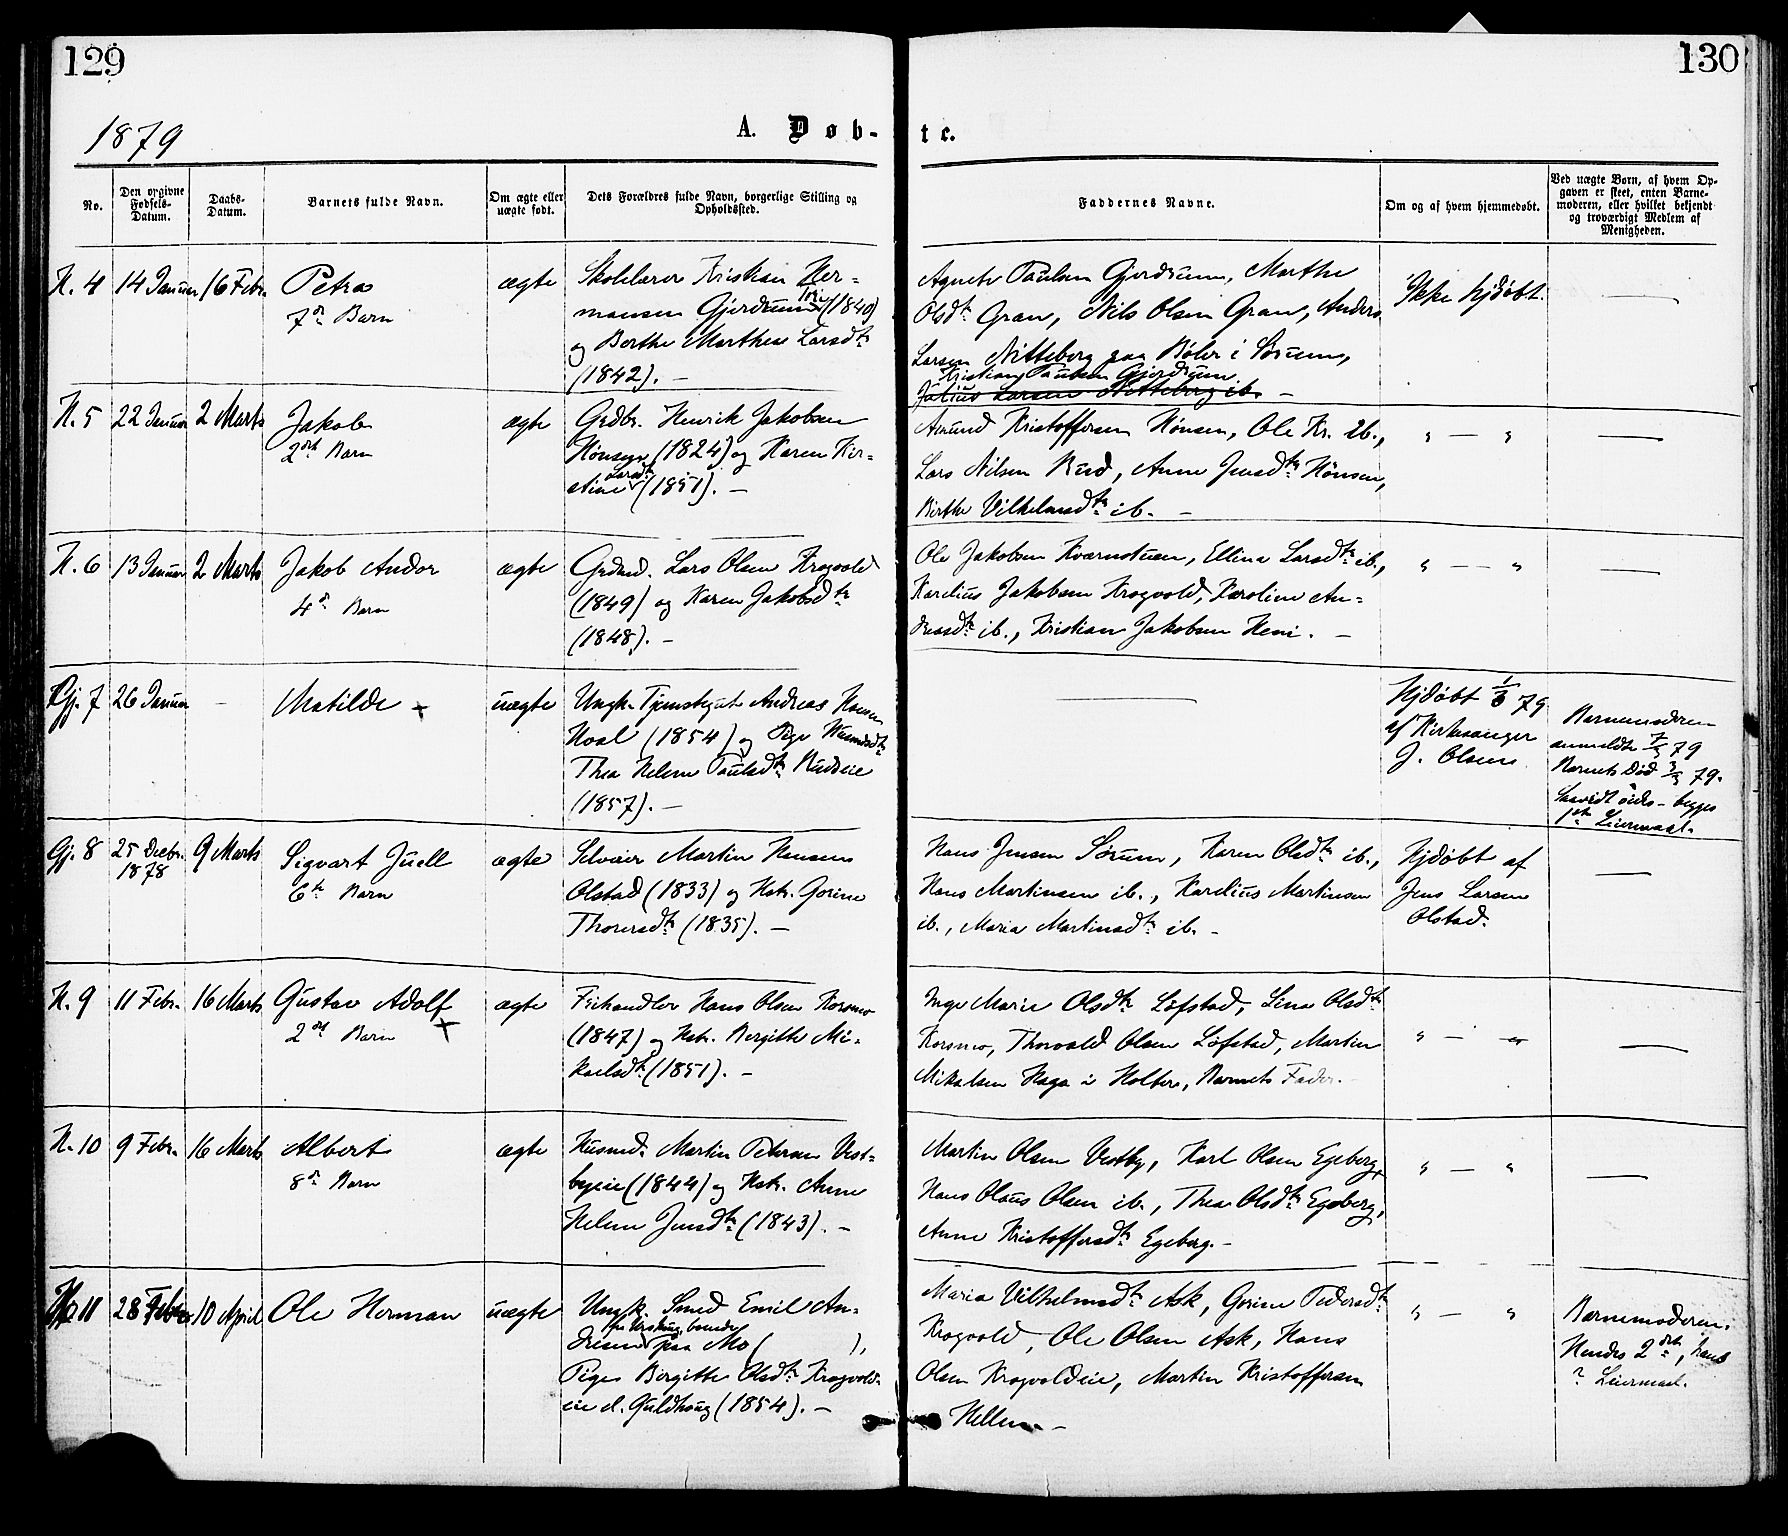 129
130
1879
A. Døb-
te.
No.
Den opgivne Fødsels-Datum.
Daabs-Datum.
Barnets fulde Navn.
Om ægte eller uægte født.
Dets Forældres fulde Navn, borgerlige Stilling og Opholdssted.
Faddernes Navne.
Om og af hvem hjemmedøbt.
Ved uægte Børn, af hvem Opgaven er skeet, enten Barnemoderen, eller hvilket bekjendt og troværdigt Medlem af Menigheden.
N. 4 14 Januar 16 Febr. Petra
7de Barn
ægte
Skolelærer Kristian Her-
mansen Gjerdrum (1840)
og Berthe Marthea Larsdtr
(1842). —
Agnethe Paulsen Gjerdrum, Marthe
Olsdtr Gran, Nils Olsen Gran, Anders
Larsen Nitteberg paa Bøler i Sørum,
Kristian Paulsen Gjerdrum
Julius Larsen Nitteberg ib. —
Ikke hjdøbt.
N. 5 22 Januar 2 Marts Jakob
2det Barn
ægte
Grdbr. Henrik Jakobsen
Hønsen (1824) og Karen Kir-
stine Larsdtr (1851). —
Amund Kristoffersen Hønsen, Ole Kr. ib.,
Lars Nilsen Rud, Anne Jensdtr Hønsen,
Birthe Vilhelmsdtr ib. —
" — "
N. 6 13 Januar 2 Marts Jakob Andor
4de Barn
ægte
Grdmd. Lars Olsen Krogvold
(1849) og Karen Jakobsdtr
(1848). —
Ole Jakobsen Kværnstuen, Ellina Larsdtr ib.,
Karelius Jakobsen Krogvold, Karoline An-
dreasdtr ib., Kristian Jakobsen Heni. —
" — "
Gj. 7 26 Januar — Matilde +
uægte
Ungk. Tjenstegut Andreas Hansen
Hoal (1854) og Pige Husmdsdtr
Thea Helene Paulsdtr Rudseie
(1857). —
Hjdøbt 1/3 79
af Kirkesanger
J. Olsen
Barnemoderen
anmeldte 7/3 79
Barnets Død 3/3 79.
begges
1ste Leiermaal.
Gj. 8 25 Decbr. 1878 9 Marts Sigvart Juell
6te Barn
ægte
Selveier Martin Hansen
Olstad (1833) og Hstr. Gorine
Thorersdtr (1835). —
Hans Jensen Sørum, Karen Olsdtr ib.,
Hans Martinsen ib., Karelius Martinsen
ib., Maria Martinsdtr ib. —
Hjdøbt af
Jens Larsen
Olstad.
N. 9 11 Febr. 16 Marts Gustav Adolf +
2det Barn
ægte
Frihandler Hans Olsen Korsmo
(1847) og Hstr. Bergitte Mi-
kaelsdtr (1851). —
Inge Marie Olsdtr Løfstad, Lina Olsdtr
Korsmo, Thorvald Olsen Løfstad, Martin
Mikalsen Haga i Holter, Barnets Fader. —
" — "
N. 10 9 Febr. 16 Marts Albert
8de Barn
ægte
Husmd. Martin Petersen Vest-
byeie (1844) og Hstr. Anne
Helene Jensdtr (1843). —
Martin Olsen Vestby, Karl Olsen Egeberg,
Hans Olaus Olsen ib., Thea Olsdtr Egeberg,
Anne Kristoffersdtr Egeberg. —
" — "
11 28 Febr. 10 April Ole Herman
uægte
Ungk. Smed Emil An-
dresen paa Mo ( ),
Pige Bergitte Olsdtr Krogvold-
eie d. Guldhoug (1854). —
Maria Vilhelmsdtr Ask, Gorine Pedersdtr
Krogvold, Ole Olsen Ask, Hans
Olsen Krogvoldeie, Martin Kristoffersen
Hellen —
" — "
Barnemoderen.
Hendes 2det, hans
? Leiermaal.